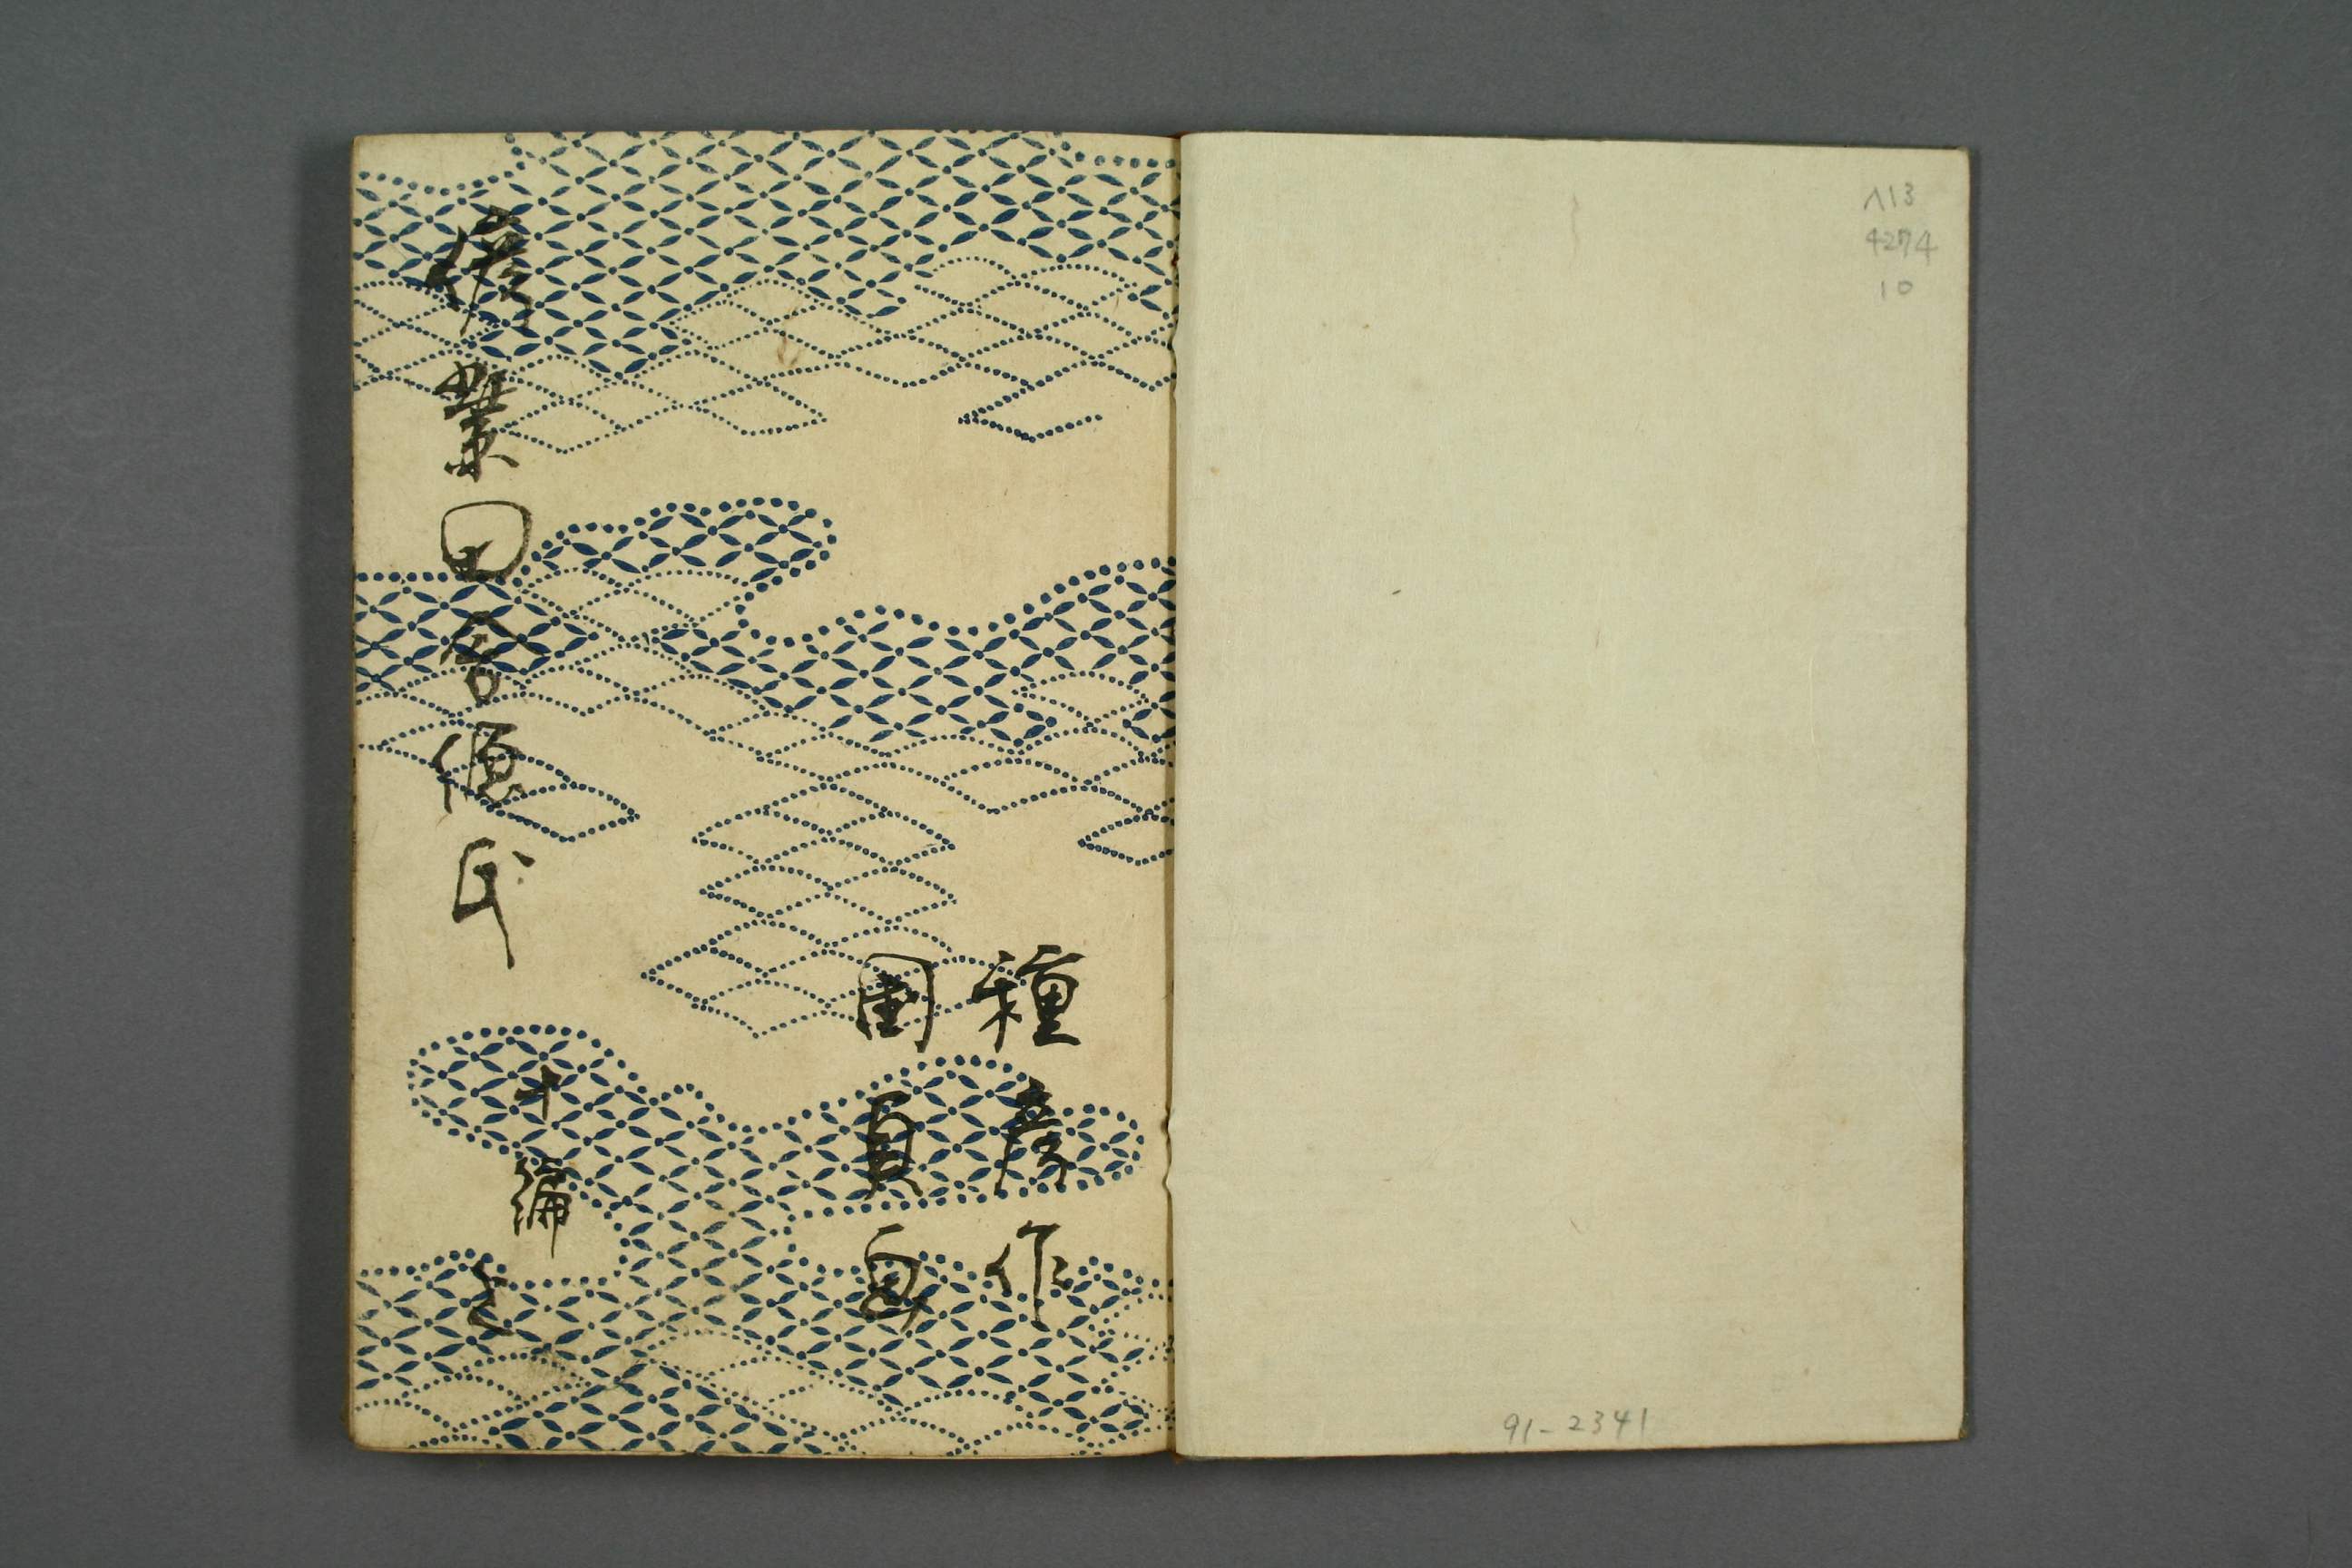 ヘ13
4274
10
91-2341
種彦作
国貞画
偐紫田舎源氏
十編
上